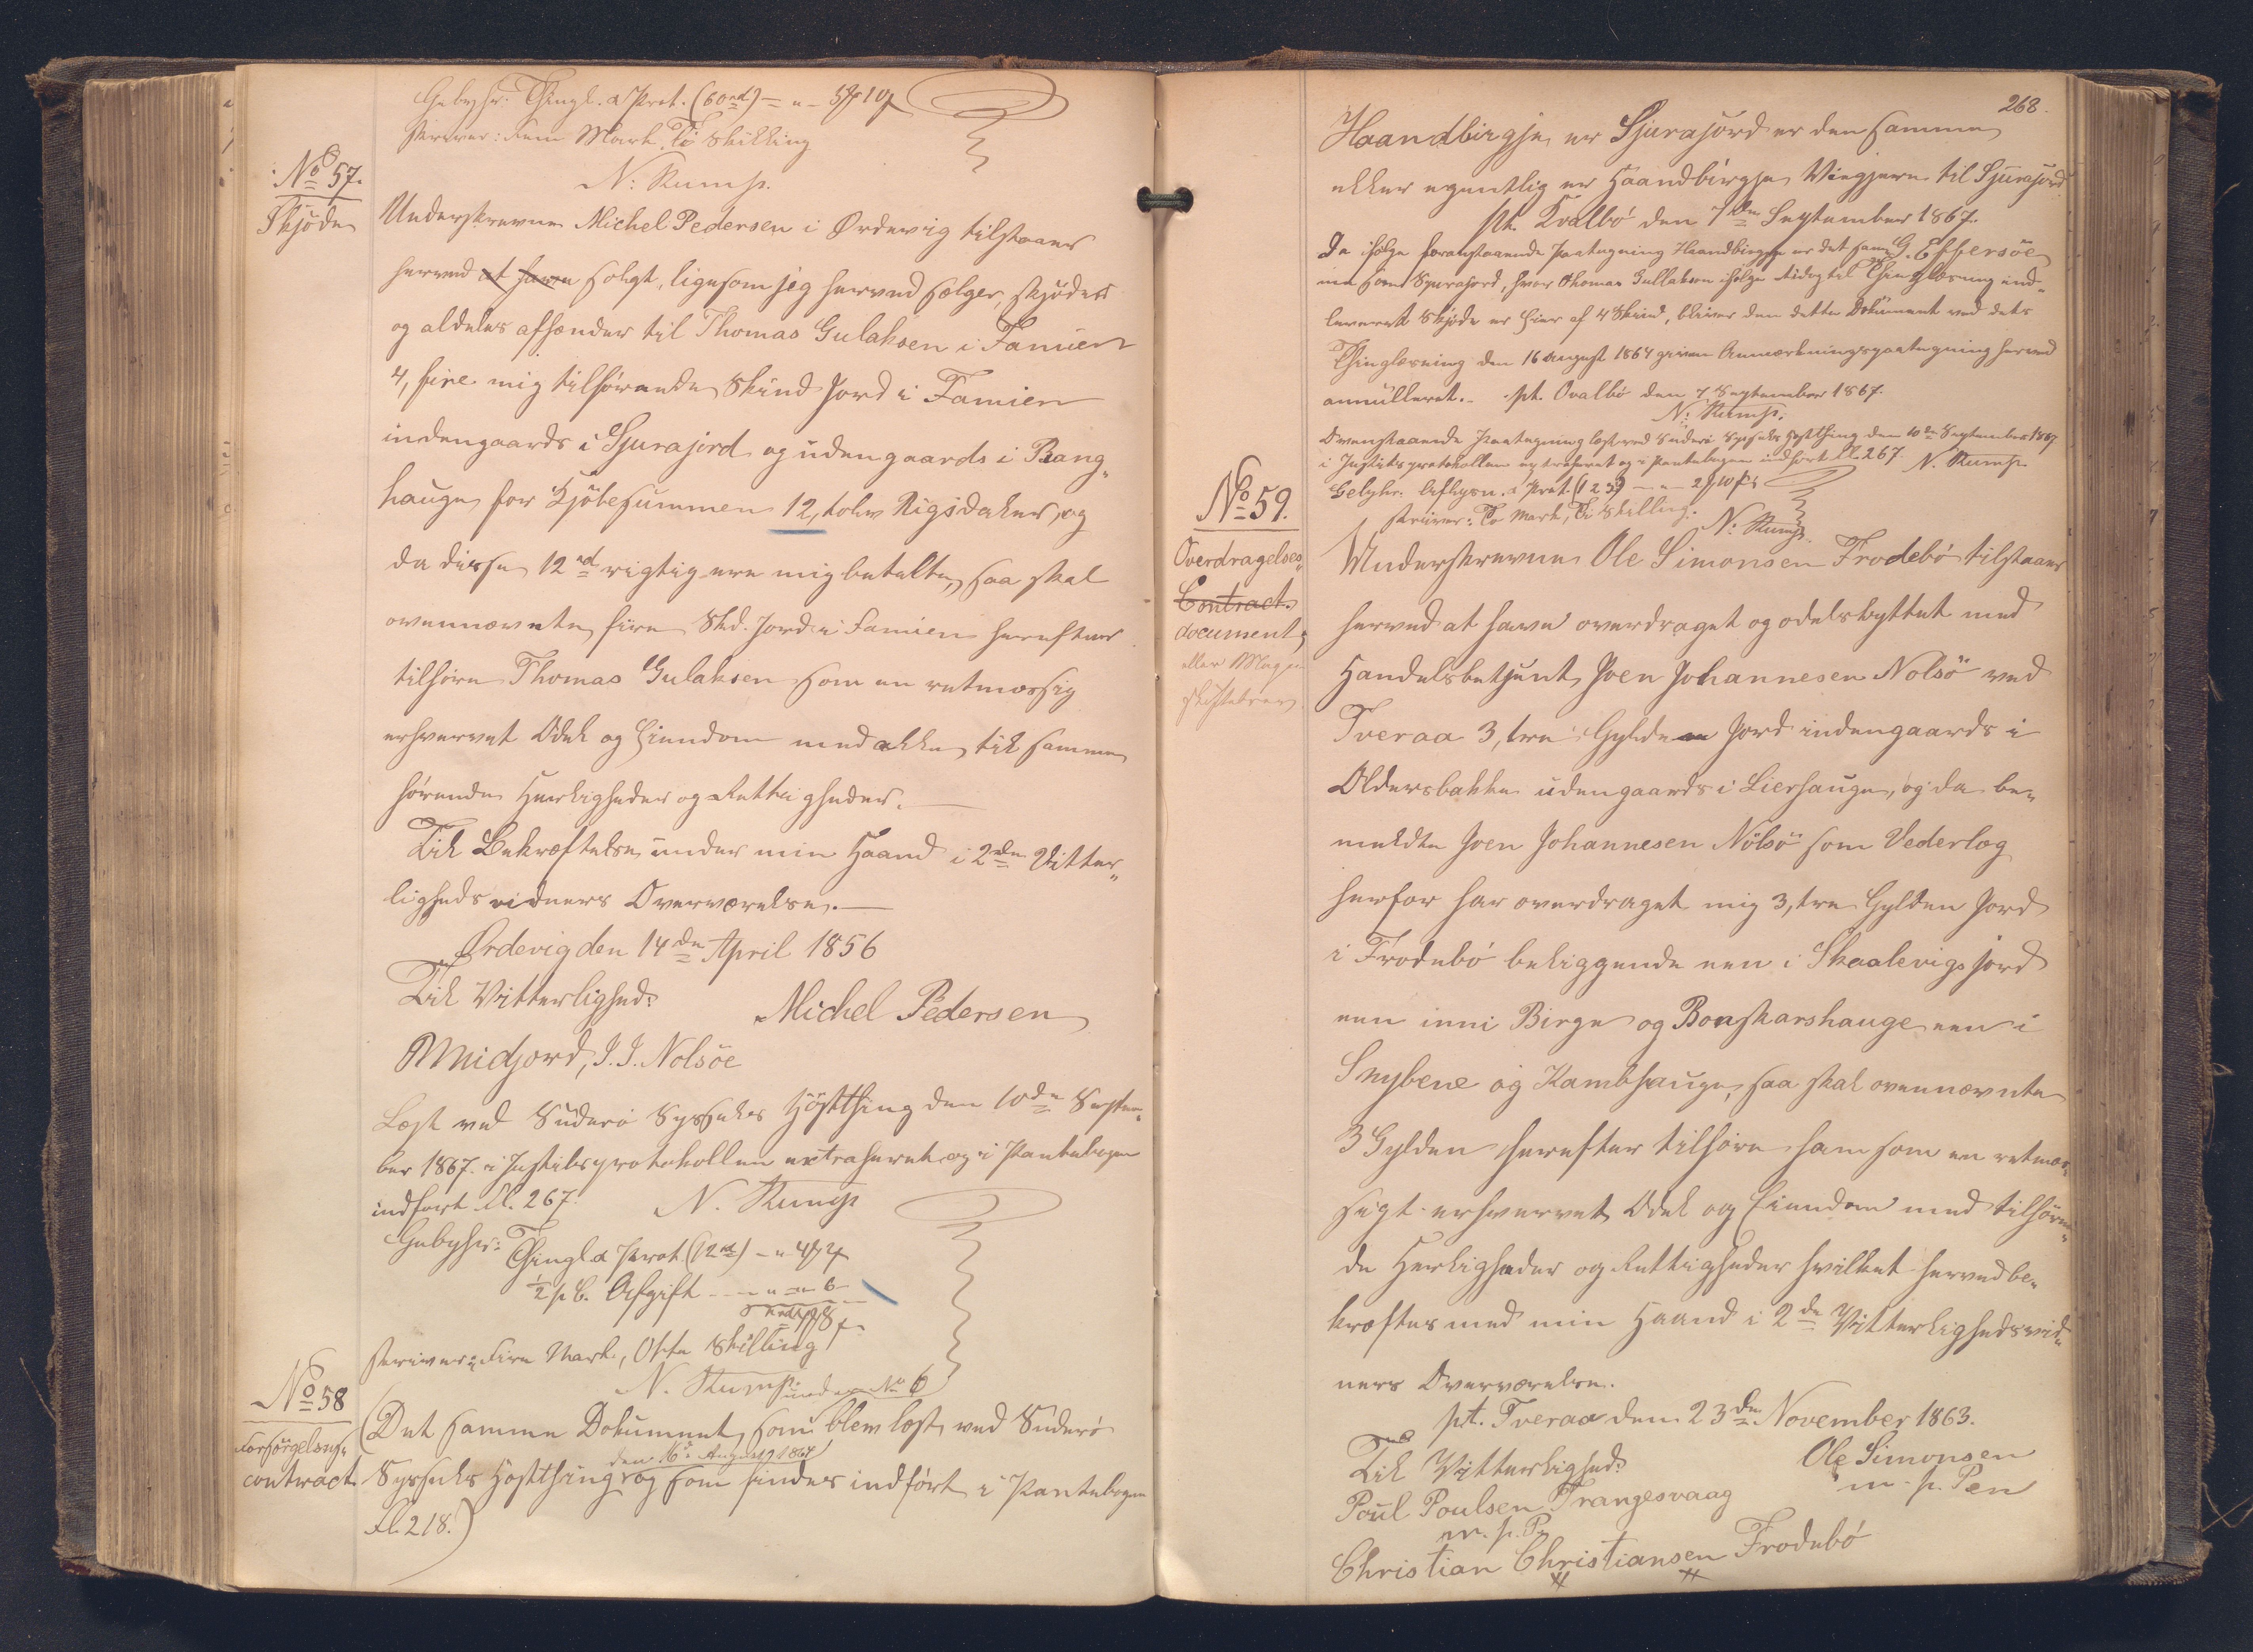 Gebyhr: Thingl. & Prot. (60 rd) = " - 5 # 10 f
skriver: Fem Mark Ti Skilling
N: Rump.
No 57.
Skjøde
Underskrevne Michel Pedersen i Ørdevig tilstaaer
herved at have solgt, ligesom jeg herved sælger, skjøder
og aldeles afhænder til Thomas Gulaksen i Famien
4, fire mig tilhørende Skind Jord i Famien
indengaards i Sjurajord og udengaards i Rang„
hauge for Kjøbesummen 12, tolv Rigsdaler, og
da disse 12 rd rigtig ere mig betalte, saa skal
ovennævnte fire Skd. Jord i Famien herefter
tilhøre Thomas Gulaksen som en retmæssig
erhvervet Odel og Eiendom med alle til samme
hørende Herligheder og Rettigheder.
Til Bekræftelse under min Haand i 2de Vitter„
ligheds vidners Overværelse.
Ørdevig den 14de April 1856
Til Vitterlighed:
Michel Pedersen
Midjord, J. J. Nolsöe
Læst ved Suderø Syssels Høstthing den 10de Septem„
ber 1867. i Justitsprotokollen extraheret og i Pantebogen
indført Fl. 267.
N. Rump
Gebyhr: Thingl & Prot. (12 rd) - " 4 # 2 f
½ p C. Afgift - - - " = " 6 -
" rd 4 # 8 f
skriver: Fire Mark, Otte Skilling
N. Rump.
No 58
Forsørgelses„
contract
under No 6
(Det samme Dokument, som blev læst ved Suderø
den 16de August 1864
Syssels Høstthing og som findes indført i Pantebogen
Fl. 218.)
268.
Haandbirgje er Sjurajord er den samme
eller egentlig er Haandbirgje Viegjere til Sjurajord
pt. Kvalbø den 7de September 1867.
G. Effersöe
Da ifølge foranstaaende Paategning Haandbirgje er det sam„
me som Sjurajord, hvor Thomas Gullaksen ifølge tidg til Thinglæsning ind„
leveret Skjøde er Eier af 4 Skind, bliver den dette Dokument ved dets
Thinglæsning den 16 August 1864 givne Anmærkningspaategning herved
annulleret. pt. Qvalbø den 7 September 1867.
N: Rump.
Ovenstaaende Paategning læst ved Suderø Syssels Høstthing den 10de September 1867
i Justitsprotokollen extraheret og i Pantebogen indført Fl. 267. N. Rump
Gebyhr. Aflysn. & Prot. - " - 2 # 10 f
skriver: To Mark, Ti Skilling.
N: Rump.
No 59.
Overdragelses„
Contract.
document,
eller Mage„
skiftebrev
Underskrevne Ole Simonsen Frodebø tilstaaer
herved at have overdraget og odelsbyttet med
Handelsbetjent Joen Johannesen Nolsö ved
Tveraa 3, tre Gylden Jord indengaards i
Oldersbakke udengaards i Lierhauge, og da be„
meldte Joen Johannesen Nölsö som Vederlag
herfor har overdraget mig 3, tre Gylden Jord
i Frodebø beliggende een i Skaalevigsjord
een inni Birge og Bonskarshauge een i
Snybene og Kambhauge, saa skal ovennævnte
3 Gylden herefter tilhøre ham som en retmæs„
sigt erhvervet Odel og Eiendom med tilhøren„
de Herligheder og Rettigheder hvilket herved be„
kræftes med min Haand i 2de Vitterlighedsvid„
ners Overværelse.
pt. Tveraa den 23de November 1863.
Til Vitterlighed:
Ole Simonsen
m. p. Pen
Poul Poulsen Trangesvaag
m. p. P.
Christian Christiansen Frodebø